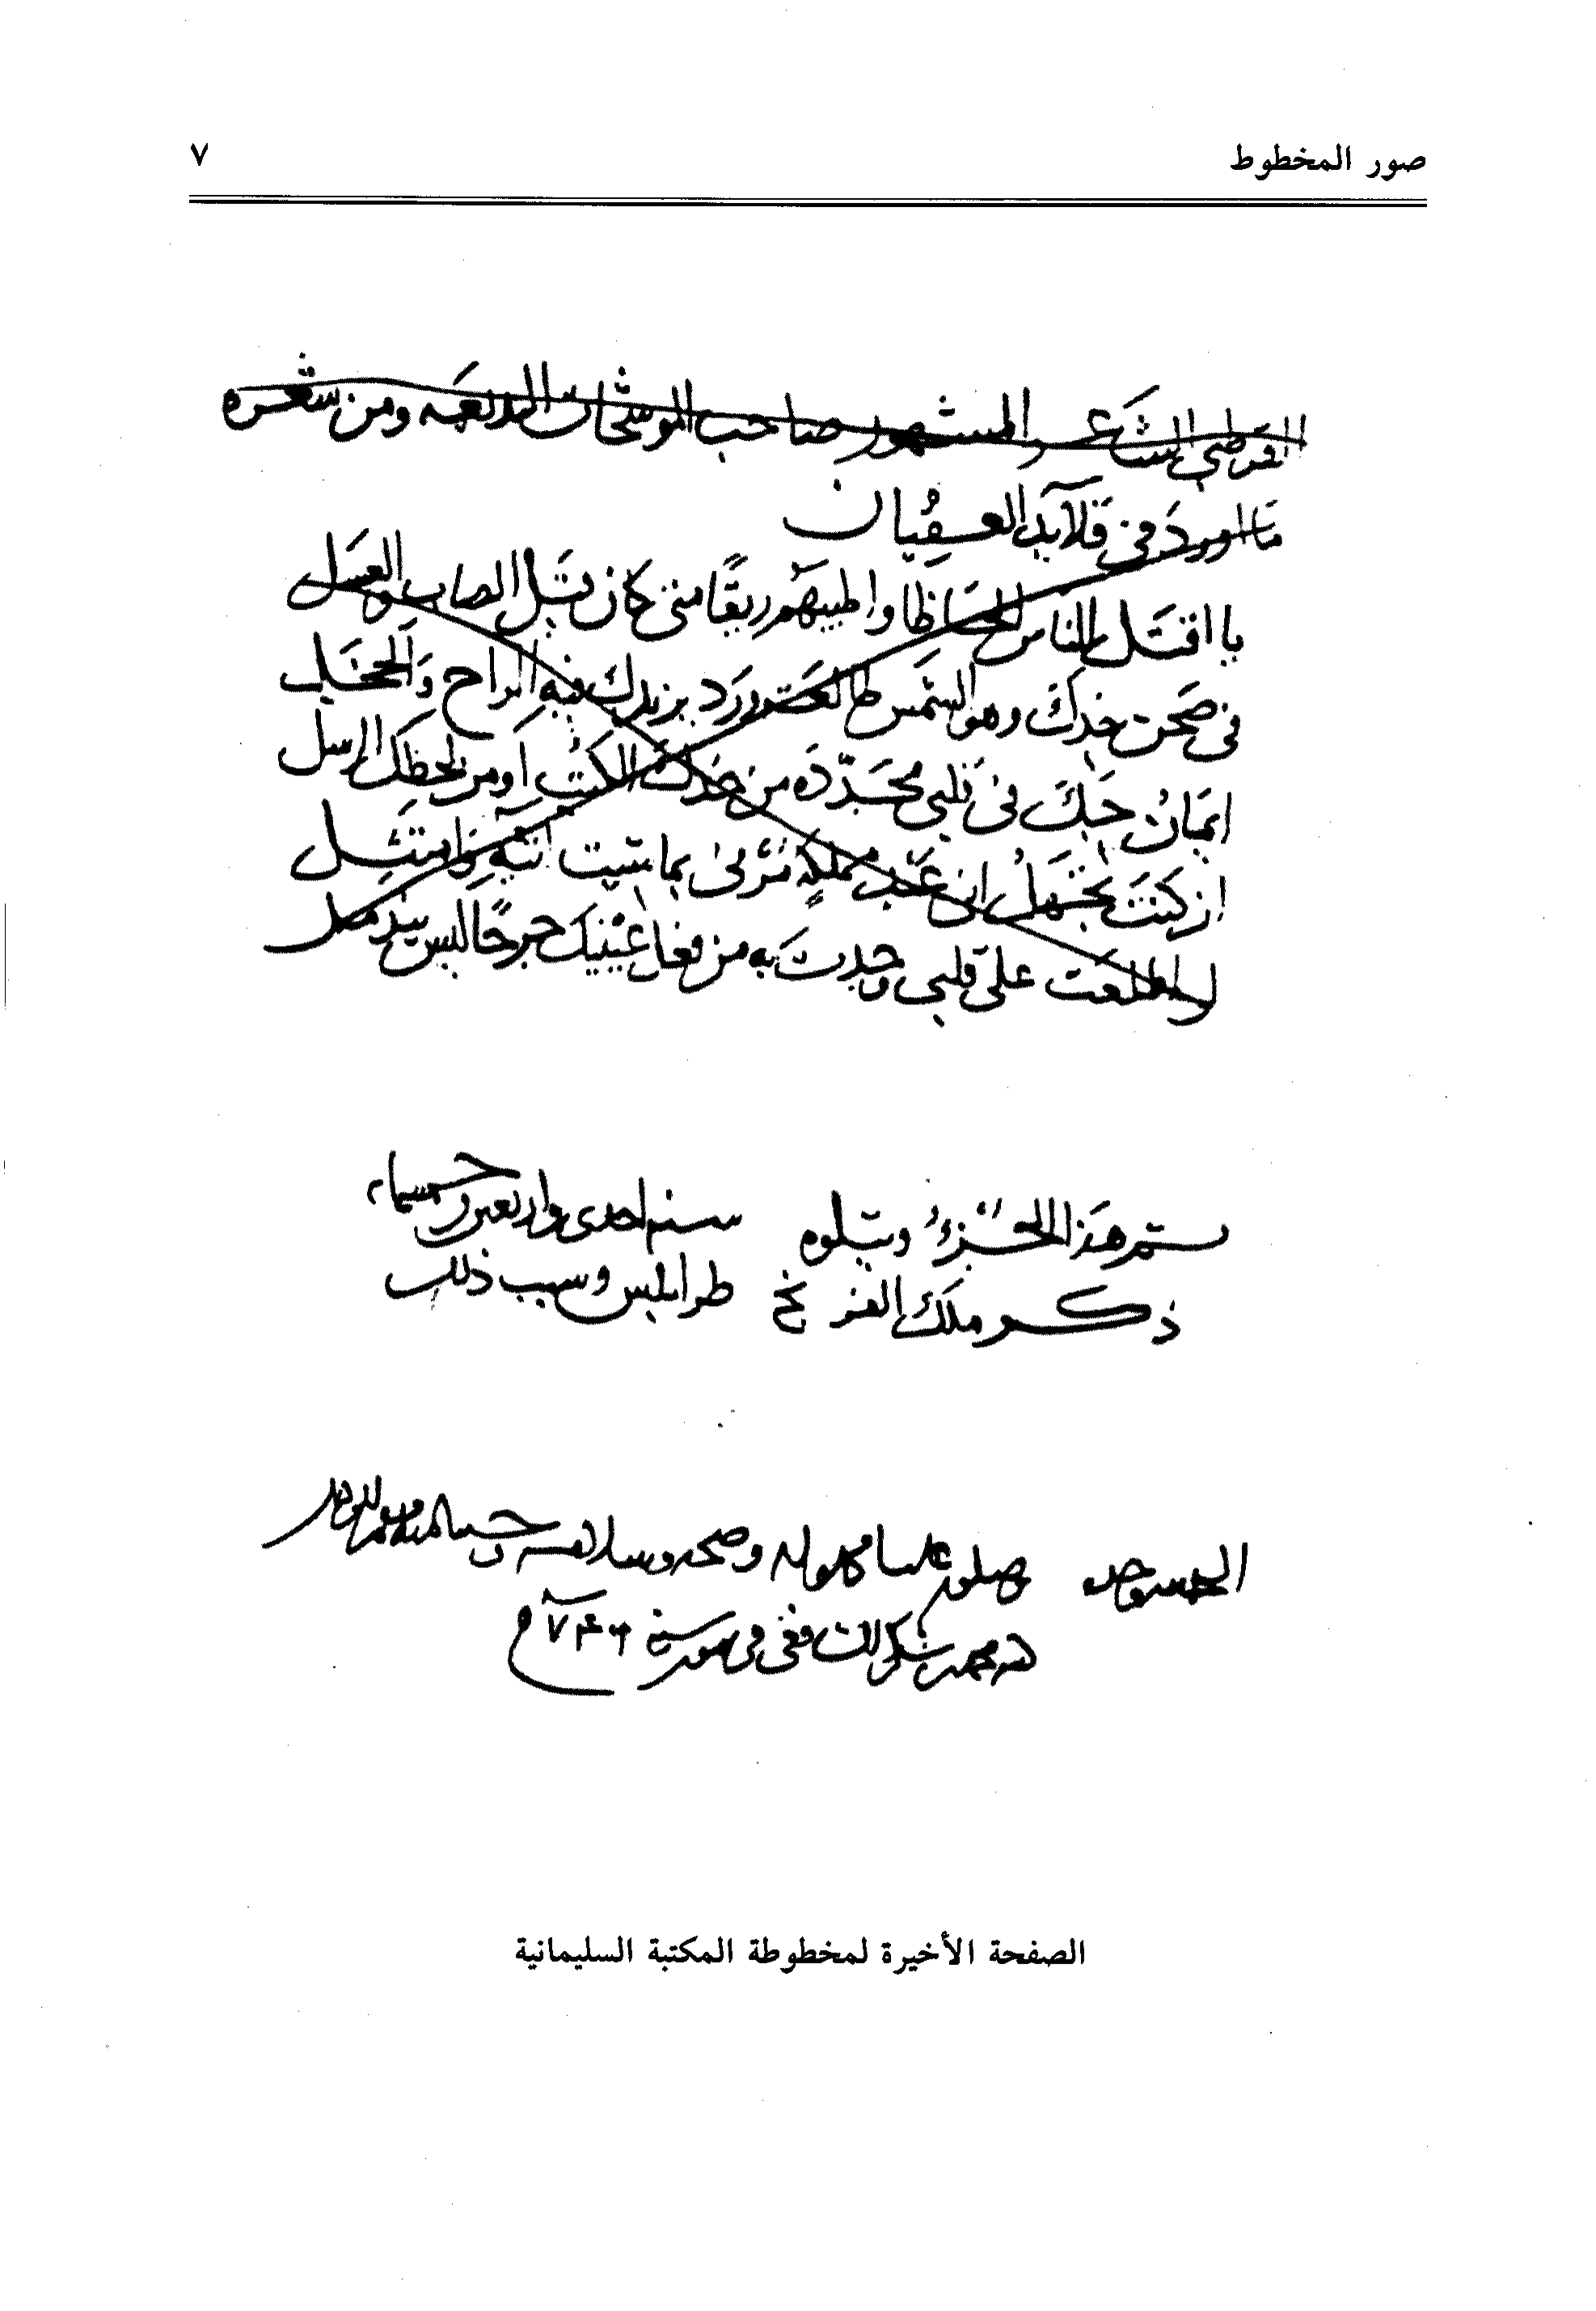 صور المخطوط ٧
القرطبي الشاعر المشهور صاحب الموشحات البديعه ومن شعره
ما اورد في قلآيد العقيان
يا اقتل الناس الحاظا واطيبهم ريقًا متى كان قبل الصاب والعسل
في صحن خدك وهو الشمس طالعة ورد يزيدك فيه الراح والخجل
ايمان حبك في قلبي مجدده من خدك الكتب او من لحظك الرسل
ان كنت تجهل اني عبد مملكة مرني بما شيت آتيه وامتثل
لو اطلعت على قلبي وجدت به من فعل عينيك جرحا ليس يندمل
تم هذا الجزء ويتلوه سنه احدى واربعين وخمسمايه
ذكر ملك الفرنج طرابلس وسبب ذلك
الحمد وحده وصحبه وسلامه
محمد في سنة
الصفحة الأخيرة لمخطوطة المكتبة السليمانية